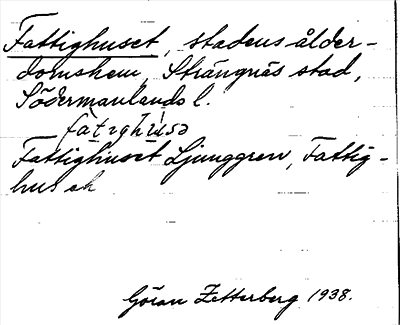 Fattighuset, stadens ålder-
domshem, Strängnäs stad,
Södermanlands l.
fàtighúsə
Fattighuset Ljunggren, Fattig-
hus ek
Göran Zetterberg 1938.